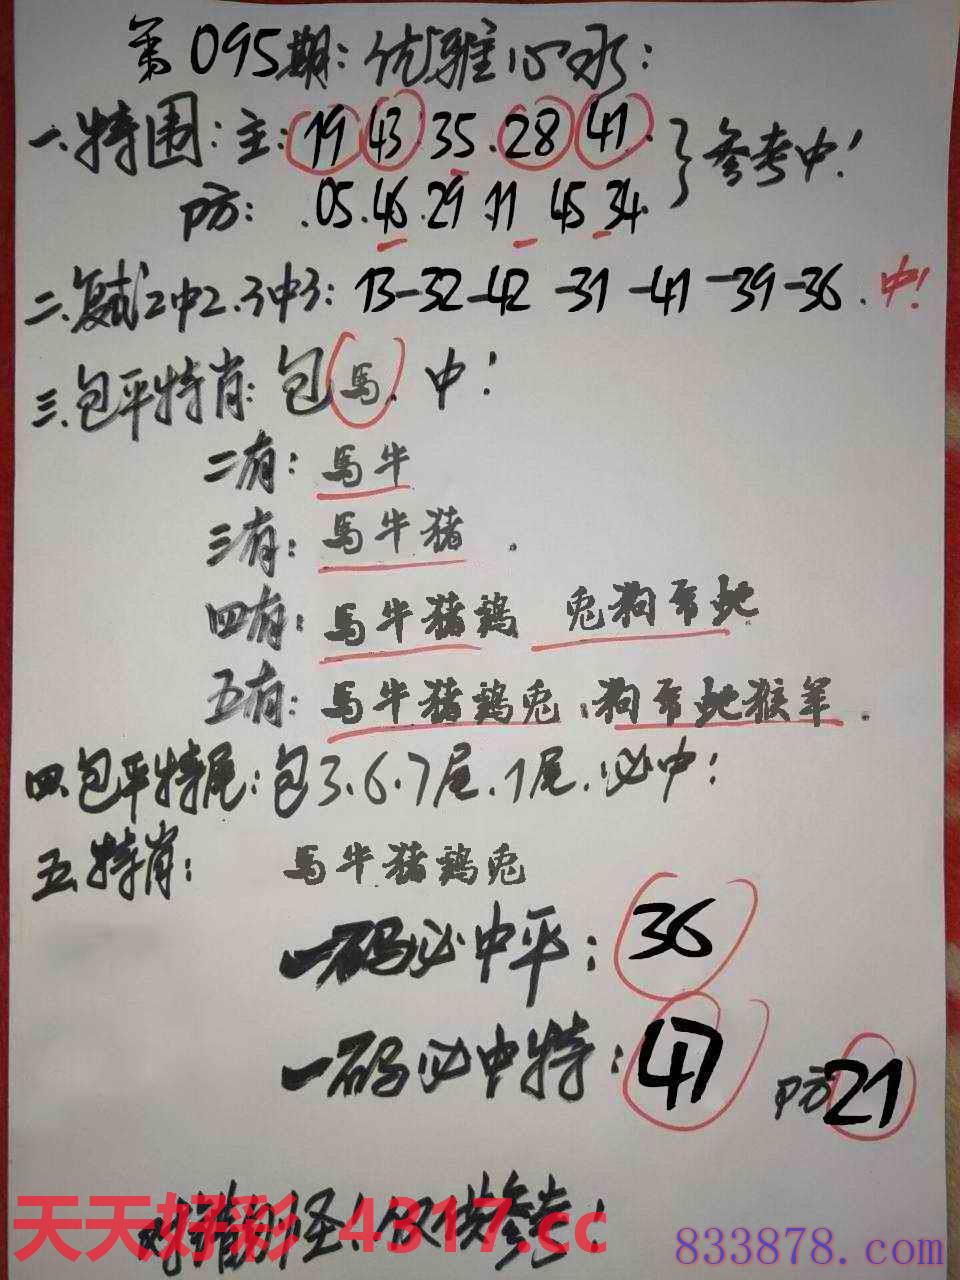 第095期:优雅心水:
一.特围:主:19 43 35.28 41.
防:.05.46.29.11 45 34.
参考中!
二.复试2中2.3中3:13-32-42-31-41-39-36.中!
三.包平特肖:包马.中!
二有:马牛
三有:马牛猪.
四有:马牛猪鸡 兔狗 蛇
五有:马牛猪鸡兔.狗 蛇猴羊.
四.包平特尾:包3.6.7尾.1尾.必中:
五.特肖:马牛猪鸡兔
一码必中平:36
一码必中特:47 防21
对错勿怪!仅供参考!
天天好彩 4317.cc
833878.com